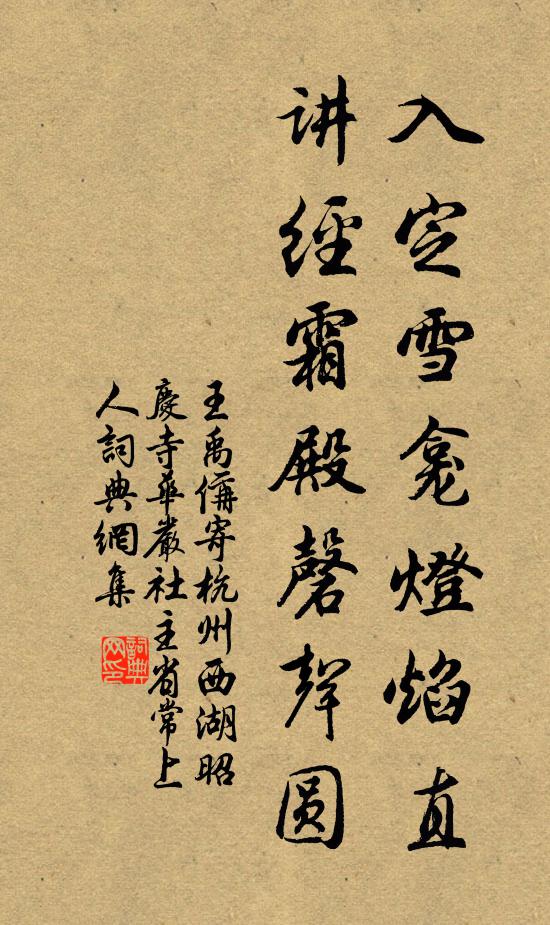 入定雪龛燈焰直
讲經霜殿磬聲圆
王禹偁寄杭州西湖昭
慶寺華嚴社主省常上
人詞典網集
詞典网印